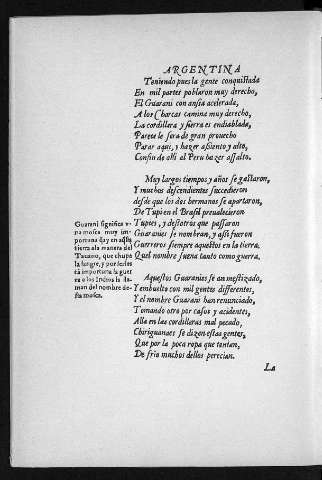 ARGENTINA
Teniendo pues la gente conquistada
En mil partes poblaron muy derecho,
El Guarani con ansia acelerada,
A los Charcas camina muy derecho,
La cordillera y sierra es endiablada,
Parecele sera de gran prouecho
Parar aqui, y hazer assiento y alto,
Confin de alli al Peru hazer assalto.
Muy largos tiempos y años se gastaron,
Y muchos descendientes succedieron
desde que los dos hermanos se apartaron,
De Tupi en el Brasil preualecieron
Tupies, y destotros que passaron
Guaranies se nombran, y assi fueron
Guerreros siempre aquestos en la tierra.
Quel nombre suena tanto como guerra.
Guarani significa v-
na mosca muy im-
portuna q̃ay en aq̃lla
tierra a la manera del
Tauano, que chupa
la sangre, y por serles
tã importuna la guer
ra a los Indios la lla-
man del nombre de-
sta mosca.
Aquestos Guaranies se an mestizado,
Y embuelto con mil gentes differentes,
Y el nombre Guarani han renunciado,
Tomando otro por casos y acidentes,
Alla en las cordilleras mal pecado,
Chiriguanaes se dizen estas gentes,
Que por la poca ropa que tenian,
De frio muchos dellos perecian.
La